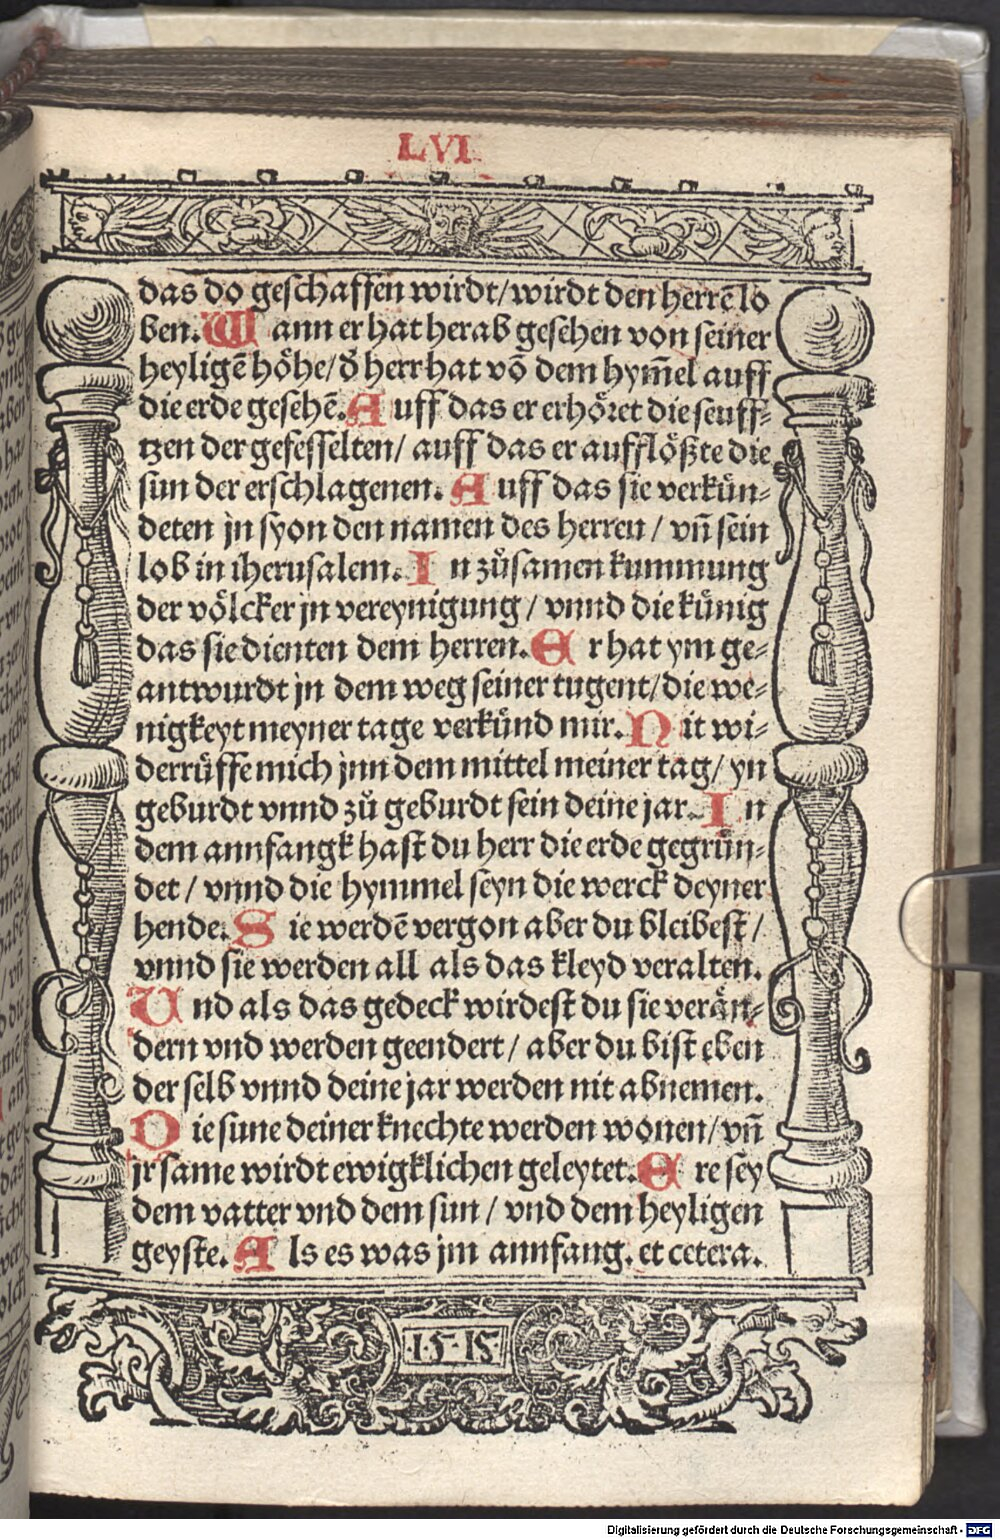 LVI
das do geschaffen wirdt/wirdt den herrē lo
ben. Wann er hat herab gesehen von seiner
heyligē höhe/ď herr hat vō dem hym̄el auff
die erde gesehē. Auff das er erhöret die seuff⸗
tzen der gefesselten/ auff das er aufflößte die
sün der erschlagenen. Auff das sie verkün⸗
deten jn syon den namen des herren / vñ sein
lob in iherusalem. In zůsamen kummung
der völcker jn vereynigung / vnnd die künig
das sie dienten dem herren. Er hat ym ge⸗
antwurdt jn dem weg seiner tugent/die we⸗
nigkeyt meyner tage verkünd mir. Nit wi⸗
derrüffe mich jnn dem mittel meiner tag/ yn
geburdt vnnd zů geburdt sein deine jar. In
dem annfangk hast du herr die erde gegrün⸗
det / vnnd die hymmel seyn die werck deyner
hende. Sie werdē vergon aber du bleibest /
vnnd sie werden all als das kleyd veralten.
Und als das gedeck wirdest du sie verän⸗
dern vnd werden geendert / aber du bist eben
der selb vnnd deine jar werden nit abnemen.
Die sune deiner knechte werden wonen/ vñ
jr same wirdt ewigklichen geleytet. Ere sey
dem vatter vnd dem sun / vnd dem heyligen
geyste. Als es was jm annfang. et cetera.
·1·5·15·
Digitalisierung gefördert durch die Deutsche Forschungsgemeinschaft - DFG